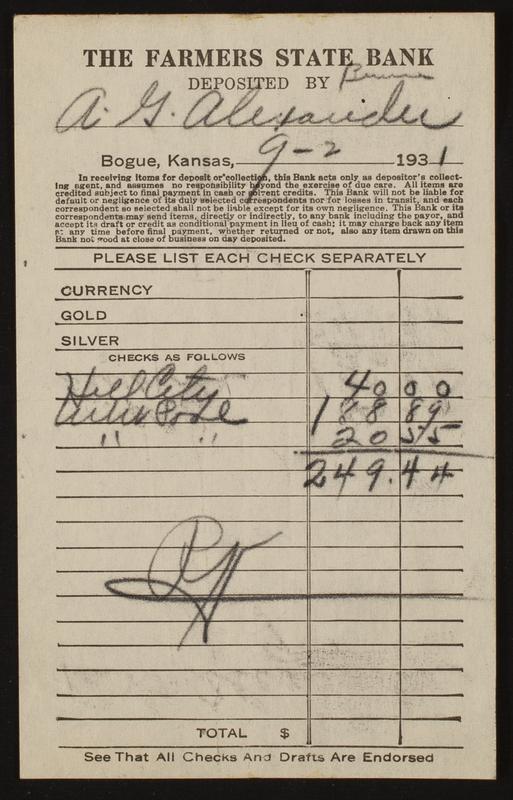 THE FARMERS STATE BANK
DEPOSITED BY
A. G. Alexander
Bogue, Kansas, 9-2 1931
In receiving items for deposit or collection, this Bank acts only as depositor's collect-
ing agent, and assumes no responsibility beyond the exercise of due care. All items are
credited subject to final payment in cash or solvent credits. This Bank will not be liable for
default or negligence of its duly selected correspondents nor for losses in transit, and each
correspondent so selected shall not be liable except for its own negligence. This Bank or its
correspondents may send items, directly or indirectly, to any bank including the payor, and
accept its draft or credit as conditional payment in lieu of cash; it may charge back any item
at any time before final payment, whether returned or not, also any item drawn on this
Bank not good at close of business on day deposited.
PLEASE LIST EACH CHECK SEPARATELY
CURRENCY
GOLD
SILVER
CHECKS AS FOLLOWS
Hill City 40 00
188 89
" " 20 55
249.44
TOTAL $
See That All Checks And Drafts Are Endorsed